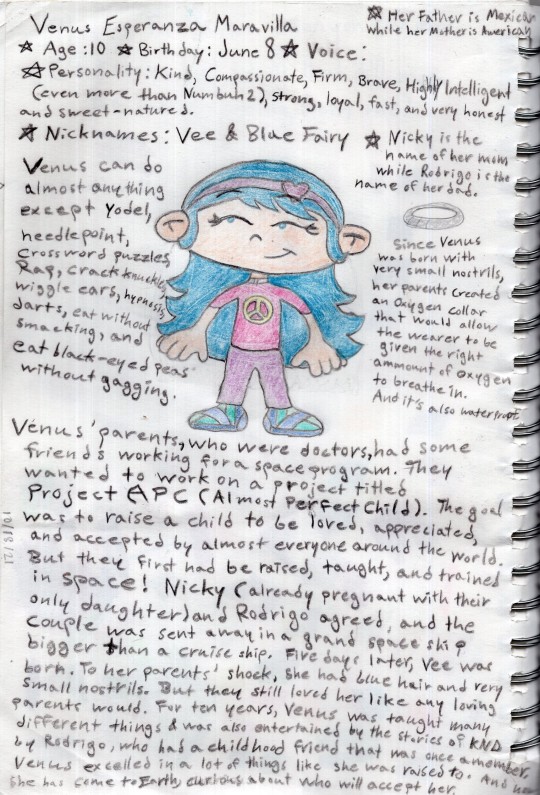 Venus Esperanza Maravilla
Age: 10 Birthday: June 8 Voice:
Her Father is Mexican
while her Mother is American
Personality: Kind, Compassionate, Firm, Brave, Highly Intelligent
(even more than Numbuh 2), strong, loyal, fast, and very honest
and sweet-natured.
Nicknames: Vee & Blue Fairy
Nicky is the
name of her mom
while Rodrigo is the
name of her dad.
Venus can do
almost anything
except Yodel,
needlepoint,
crossword puzzles,
Rap, crack knuckles,
wiggle ears, hypnosis,
darts, eat without
smacking, and
eat black-eyed peas
without gagging.
Since Venus
was born with
very small nostrils,
her parents created
an Oxygen collar
that would allow
the wearer to be
given the right
ammount of oxygen
to breathe in.
And it's also waterproof.
Venus' parents, who were doctors, had some
friends working for a space program. They
wanted to work on a project titled
Project APC (Almost Perfect Child). The goal
was to raise a child to be loved, appreciated,
and accepted by almost everyone around the world.
But they first had be raised, taught, and trained
in space! Nicky (already pregnant with their
only daughter) and Rodrigo agreed, and the
couple was sent away in a grand space ship
bigger than a cruise ship. Five days later, Vee was
born. To her parents' shock, she had blue hair and very
small nostrils. But they still loved her like any loving
parents would. For ten years, Venus was taught many
different things & was also entertained by the stories of KND
by Rodrigo, who had a childhood friend that was once a member.
Venus excelled in a lot of things like she was raised to. And now
she has come to Earth, curious about who will accept her.